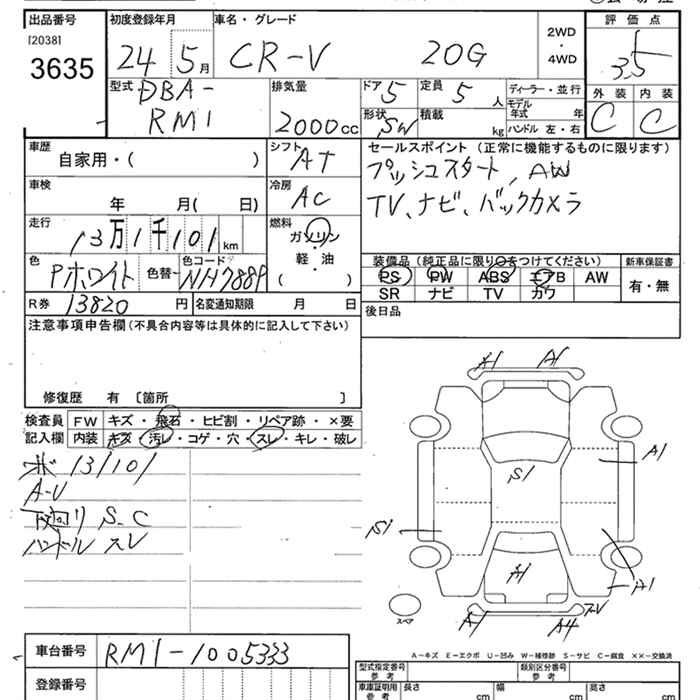 出品番号 初度登録年月 車名・グレード 評価点
[2038] 3635
24 5月 CR-V 20G
2WD
・
4WD
3.5
型式 DBA-RM1
排気量 2000cc
ドア 5 定員 5人
形状 SW 積載 kg
ディーラー・並行
モデル年式 年
ハンドル 左・右
外装 内装
C C
車歴 自家用・( )
シフト AT
セールスポイント (正常に機能するものに限ります)
プッシュスタート、AW
TV、ナビ、バックカメラ
車検 年 月( 日)
冷房 AC
走行 13万1千101km
燃料 ガソリン・軽・油 ( )
色 Pホワイト 色替 色コード NH788P
装備品 (純正品に限り○をつけてください) 新車保証書
PS PW ABS エアB AW
SR ナビ TV カワ
有・無
R券 13820円 名変通知期限 月 日
後日品
注意事項申告欄 (不具合内容等は具体的に記入して下さい)
修復歴 有 [箇所 ]
検査員記入欄
FW キズ・飛石・ヒビ割・リペア跡・×要
内装 キズ・汚レ・コゲ・穴・スレ・キレ・破レ
131101
A-U
下回り S-C
ハンドル スレ
A1 A1
A1
S1
S1
A1
A1
A1 A4
スペア
A-キズ E-エクボ U-凹み W-補修跡 S-サビ C-腐食 ××-交換済
車台番号 RM1-1005333
登録番号
型式指定番号 参考 類別区分番号 参考
車庫証明用 参考 長さ cm 幅 cm 高さ cm